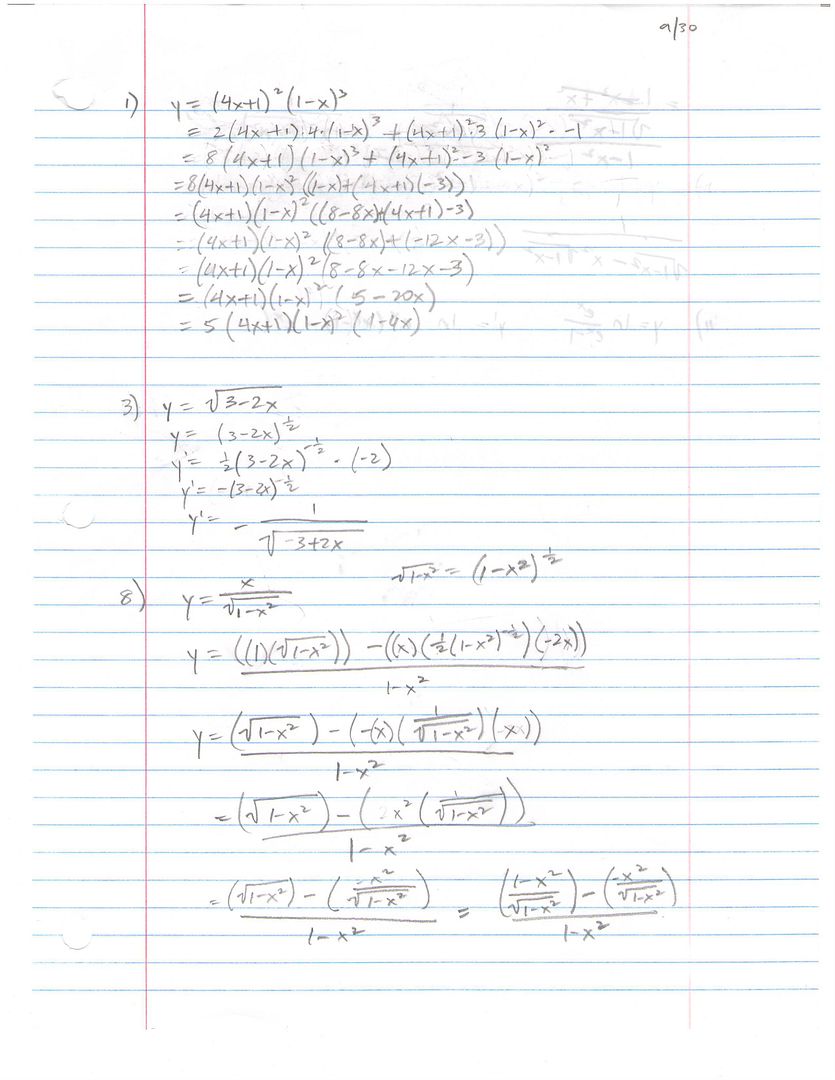 9/30
1) y = (4x+1)²(1-x)³
= 2(4x+1)·4·(1-x)³ + (4x+1)²·3(1-x)²· -1
= 8(4x+1)(1-x)³ + (4x+1)²·-3(1-x)²
= 8(4x+1)(1-x)²((1-x)+(4x+1)(-3))
= (4x+1)(1-x)²((8-8x)+(4x+1)-3)
= (4x+1)(1-x)²((8-8x)+(-12x-3))
= (4x+1)(1-x)²(8-8x-12x-3)
= (4x+1)(1-x)²(5-20x)
= 5(4x+1)(1-x)²(1-4x)
3) y = √(3-2x)
y = (3-2x)^(1/2)
y' = 1/2(3-2x)^(-1/2) · (-2)
y' = -(3-2x)^(-1/2)
y' = - 1/√(-3+2x)
√(1-x²) = (1-x²)^(1/2)
8) y = x/√(1-x²)
y = ((1)(√(1-x²)) - ((x)(1/2(1-x²)^(-1/2))(-2x)))/(1-x²)
y = ((√(1-x²)) - (-(x)(1/√(1-x²))(-x)))/(1-x²)
= ((√(1-x²)) - (2x²(1/√(1-x²))))/(1-x²)
= ((√(1-x²)) - (-x²/√(1-x²)))/(1-x²) = ((1-x²)/√(1-x²)) - (-x²/√(1-x²))/(1-x²)